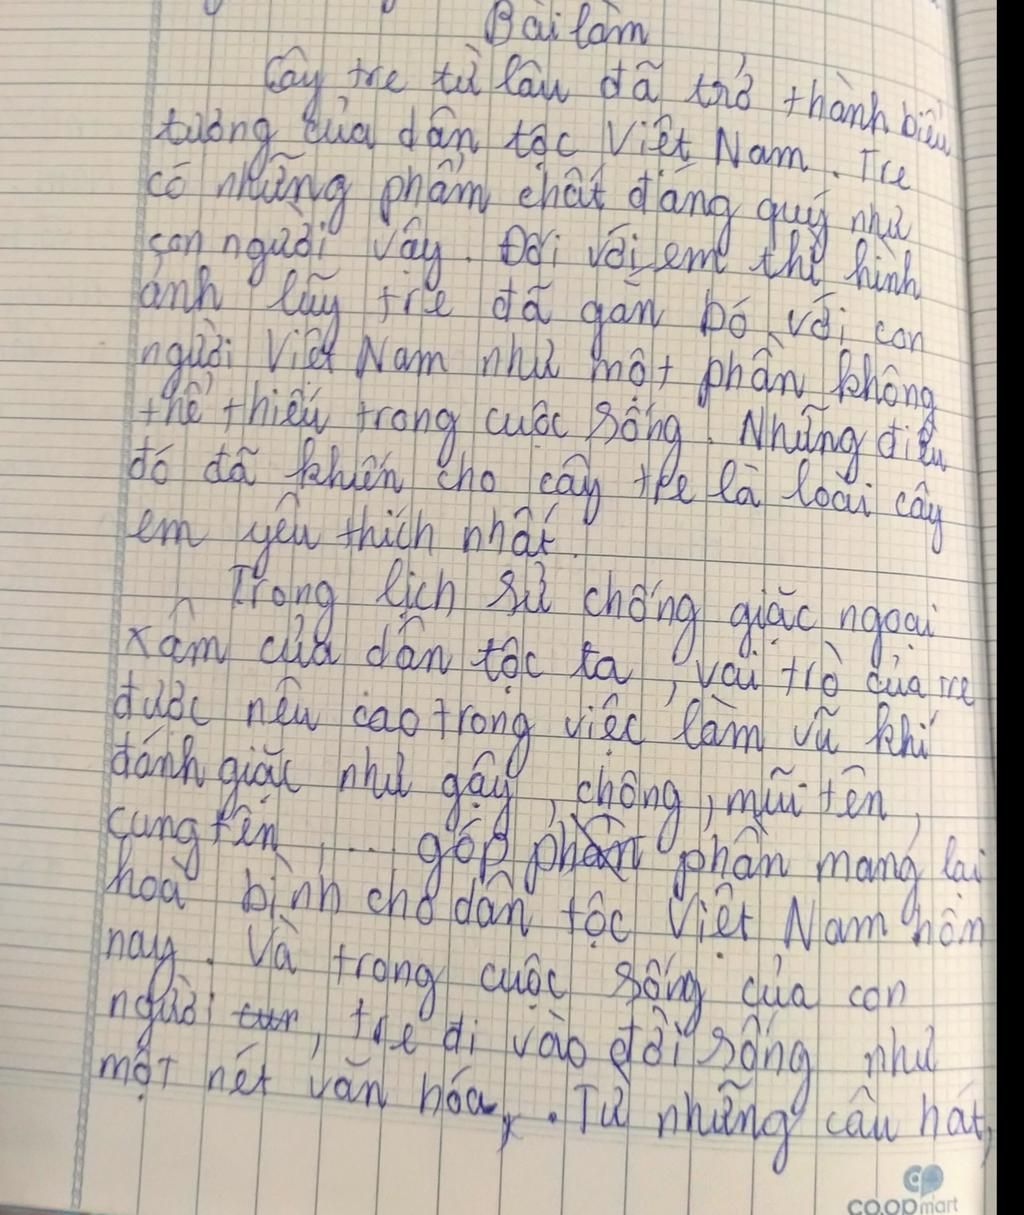 Bài làm
Cây tre từ lâu đã trở thành biểu
tượng của dân tộc Việt Nam. Tre
có những phẩm chất đáng quý như
con người vậy. Đối với em thì hình
ảnh lũy tre đã gắn bó với con
người Việt Nam như một phần không
thể thiếu trong cuộc sống. Những điều
đó đã khiến cho cây tre là loài cây
em yêu thích nhất.
Trong lịch sử chống giặc ngoại
xâm của dân tộc ta, vai trò của tre
được nêu cao trong việc làm vũ khí
đánh giặc như gậy, chông, mũi tên,
cung tên, ... góp phần mang lại
hoà bình cho dân tộc Việt Nam hôm
nay. Và trong cuộc sống của con
người, tre đi vào đời sống như
một nét văn hóa. Từ những câu hát,
co.opmart